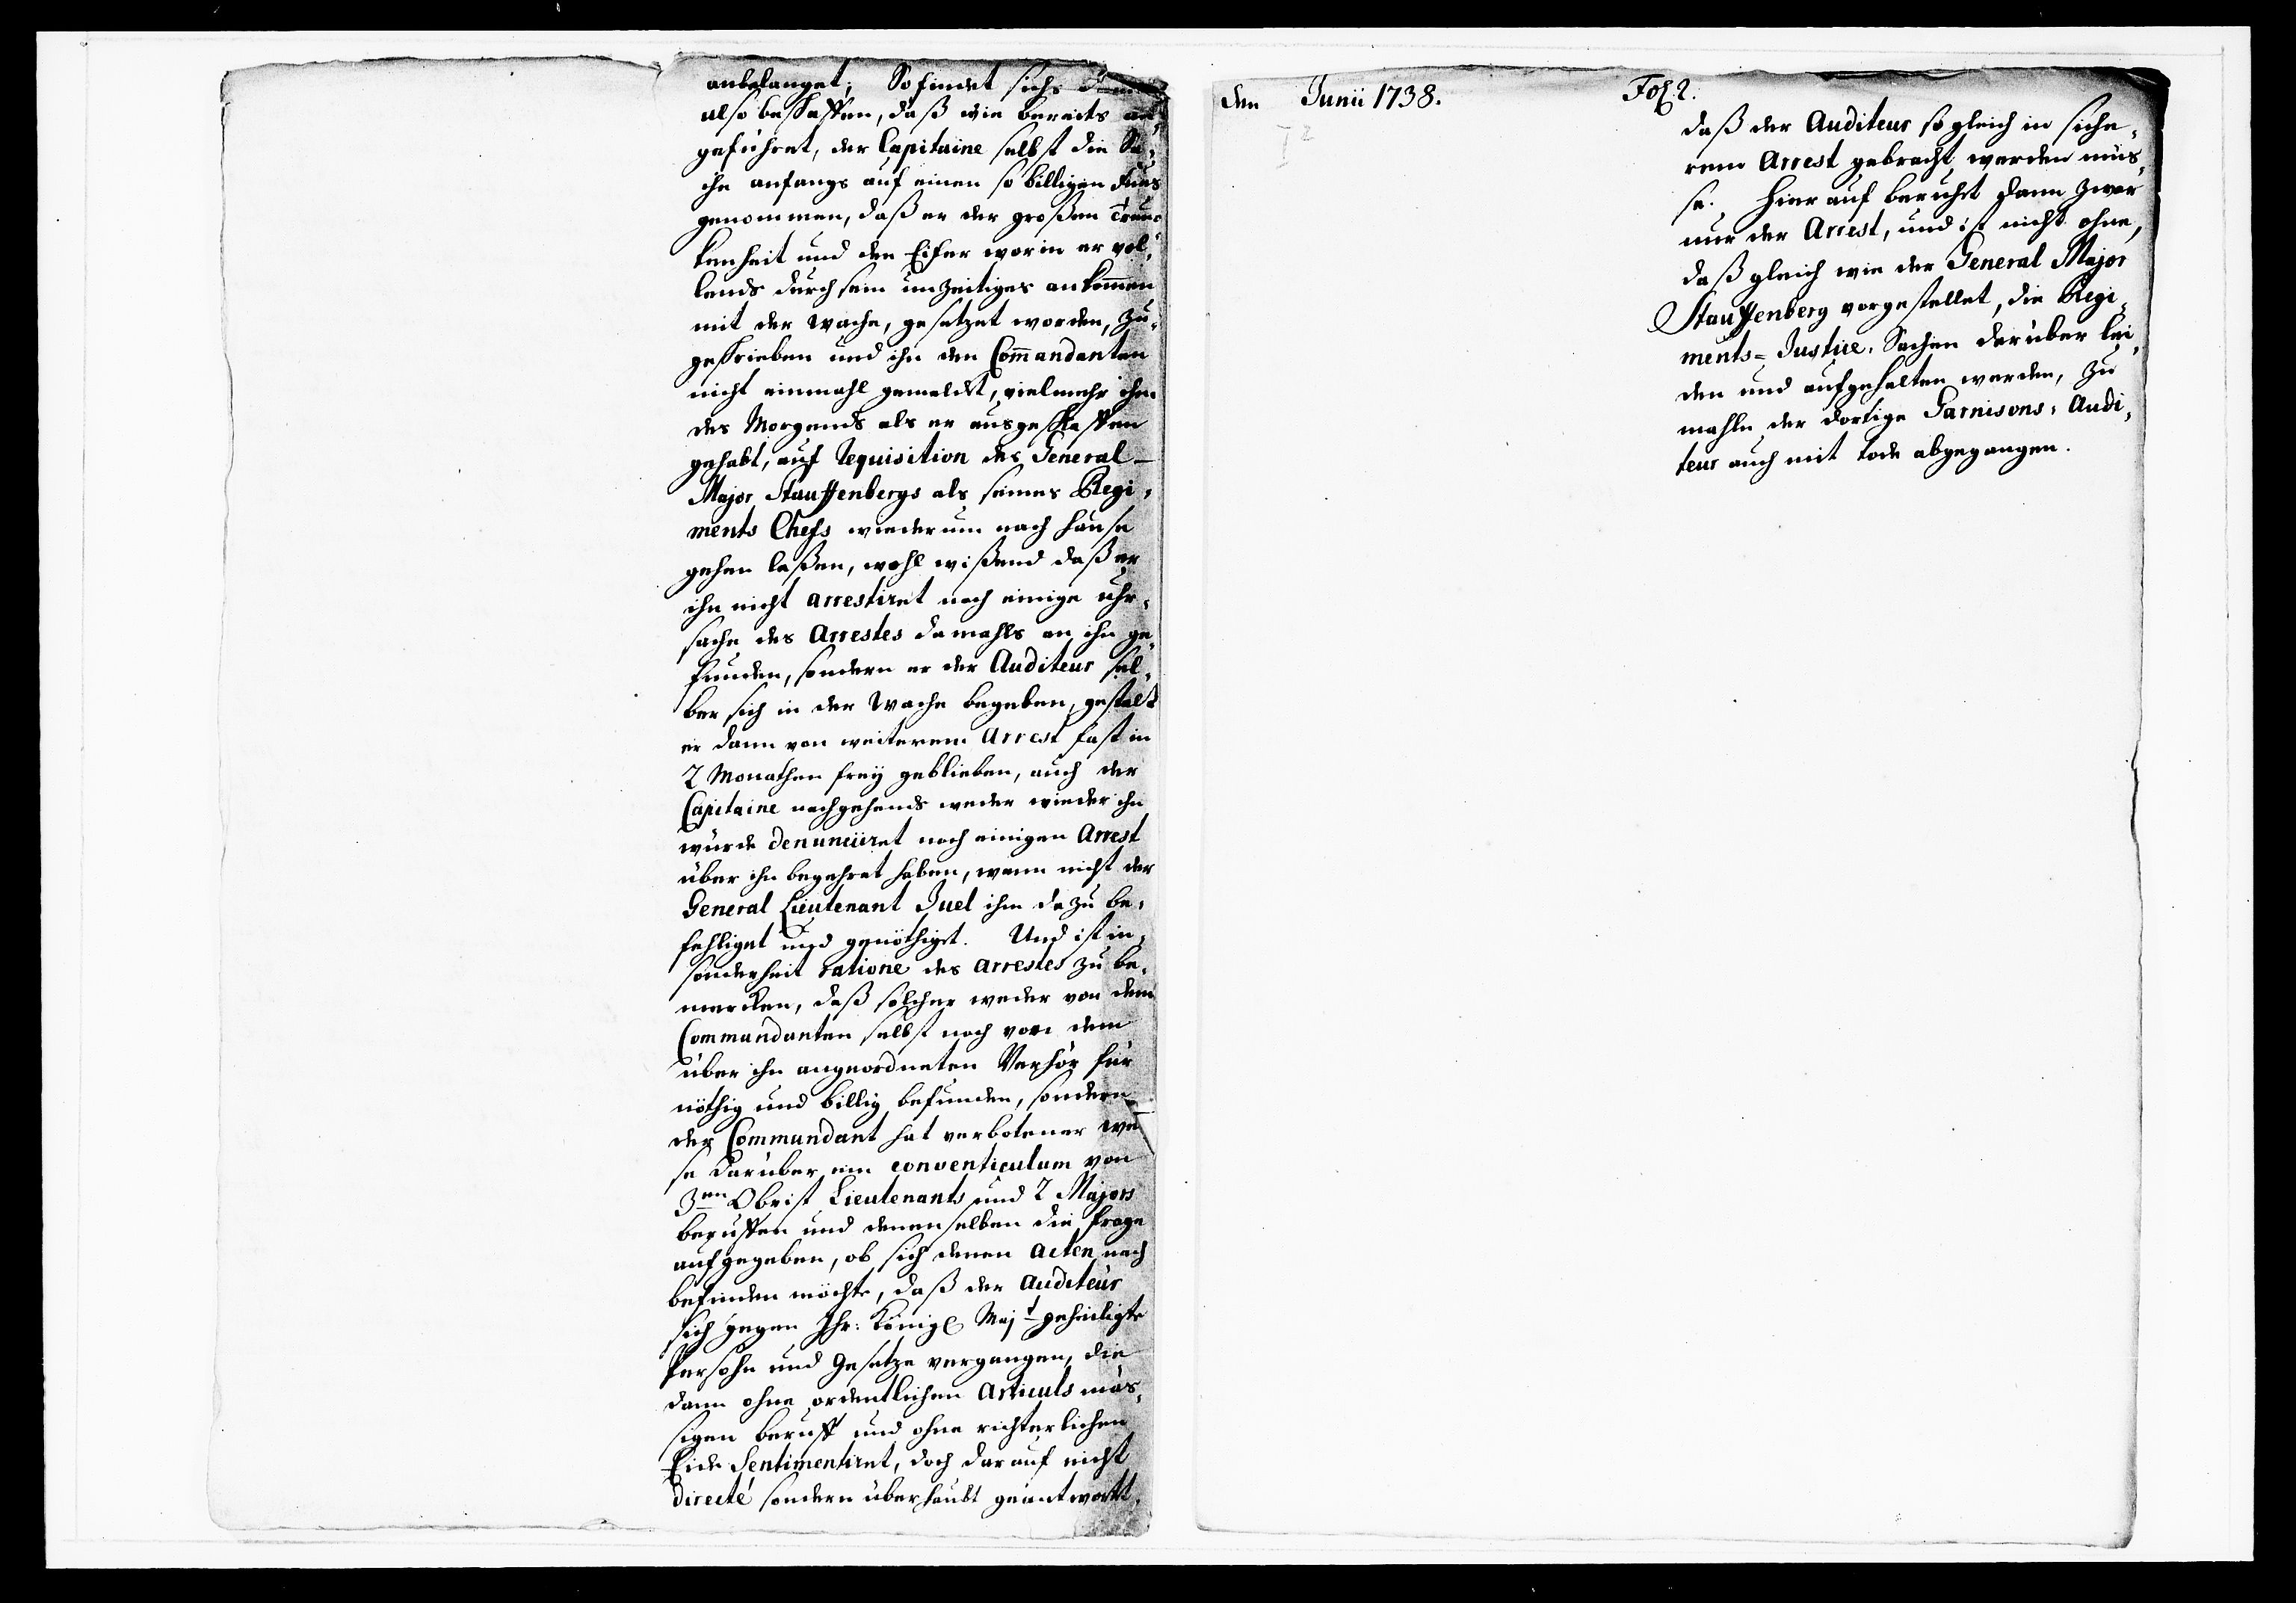 anbelanget; So findet sichs
also beschaffen, daß wie bereits an¬
geführet, der Capitaine selbst die Sa¬
che anfangs auf einen so billigen Fuß
genommen, daß er der großen Trun¬
kenheit und den Eifer worin er vol¬
lends durch sein unzeitiges ankom̄en
mit der Wache, gesetzet worden, zu¬
geschrieben und ihn den Com̄andanten
nicht einmahl gemeldet, vielmehr ihn
des Morgends als er ausgeschlaffen
gehabt, auf Requisition des General-
Major Stauffenbergs als seines Regi¬
ments Chefs wiederum nach Hause
gehen laßen, wohl wißend daß er
ihn nicht arrestiret noch einige uhr¬
sache des Arrestes damahls an ihn ge¬
funden, sondern er der Auditeur sel¬
ber sich in der Wache begeben, gestalt
er dann von weiterem Arrest fast in
2 Monathen freÿ geblieben, auch der
Capitaine nachgehends weder wieder ihn
würde denunciiret noch einigen Arrest
über ihn begehret haben, wann nicht der
General Lieutenant Juel ihm dazu be¬
fehliget und genöthiget. Und ist in¬
sonderheit ratione des Arrestes zu be¬
mercken, daß solcher weder von dem
Commandanten selbst noch von dem
über ihn angeordneten Verhör für
nöthig und billig befunden, sondern
der Commandant hat verbotener wei
se darüber ein conventiculum von
3en Obrist Lieutenants und 2 Majors
beruffen und denenselben die frage
aufgegeben, ob sich denen Acten nach
befinden möchte, daß der Auditeur
sich gegen Ihr: Königl Majt geheiligte
Persohn und Gesetze vergangen, die
dann ohne ordentlichen Articuls mäs¬
sigen beruff und ohne richterlichen
Eide Sentimentiret, doch darauf nicht
directé sondern überhaubt geantwortet,
den Junii 1738. Fol. 2.
daß der Auditeur sogleich in siche¬
rem Arrest gebracht werden müs¬
se. Hierauf beruhet dann zwar
nur der Arrest, und ist nicht ohne,
daß gleich wie der General Major
Stauffenberg vorgestellet, die Regi¬
ments=Justice-Sachen darüber lei¬
den und aufgehalten werden, zu
mahle der dortige Garnisons-Audi¬
teur auch mit tode abgegangen.